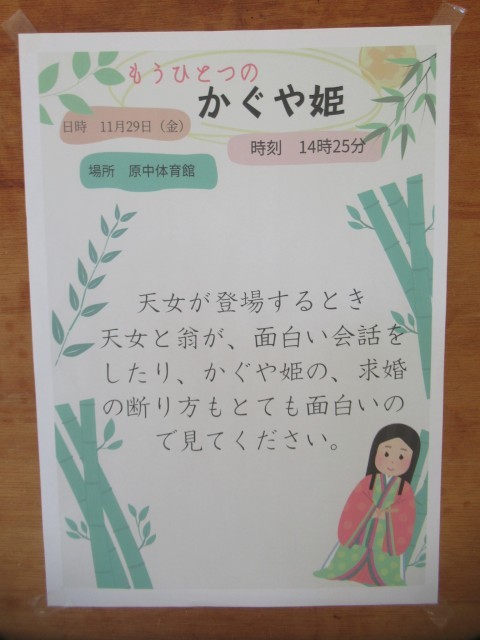 もうひとつの
かぐや姫
日時　11月29日（金）
時刻　14時25分
場所　原中体育館
天女が登場するとき
天女と翁が、面白い会話を
したり、かぐや姫の、求婚
の断り方もとても面白いの
で見てください。